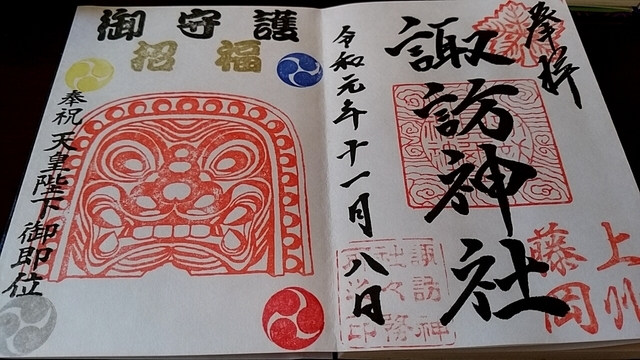 奉拝
諏訪神社
上州
藤岡
令和元年十一月八日
諏訪神
社々務
護守御
福招
奉祝 天皇陛下御即位